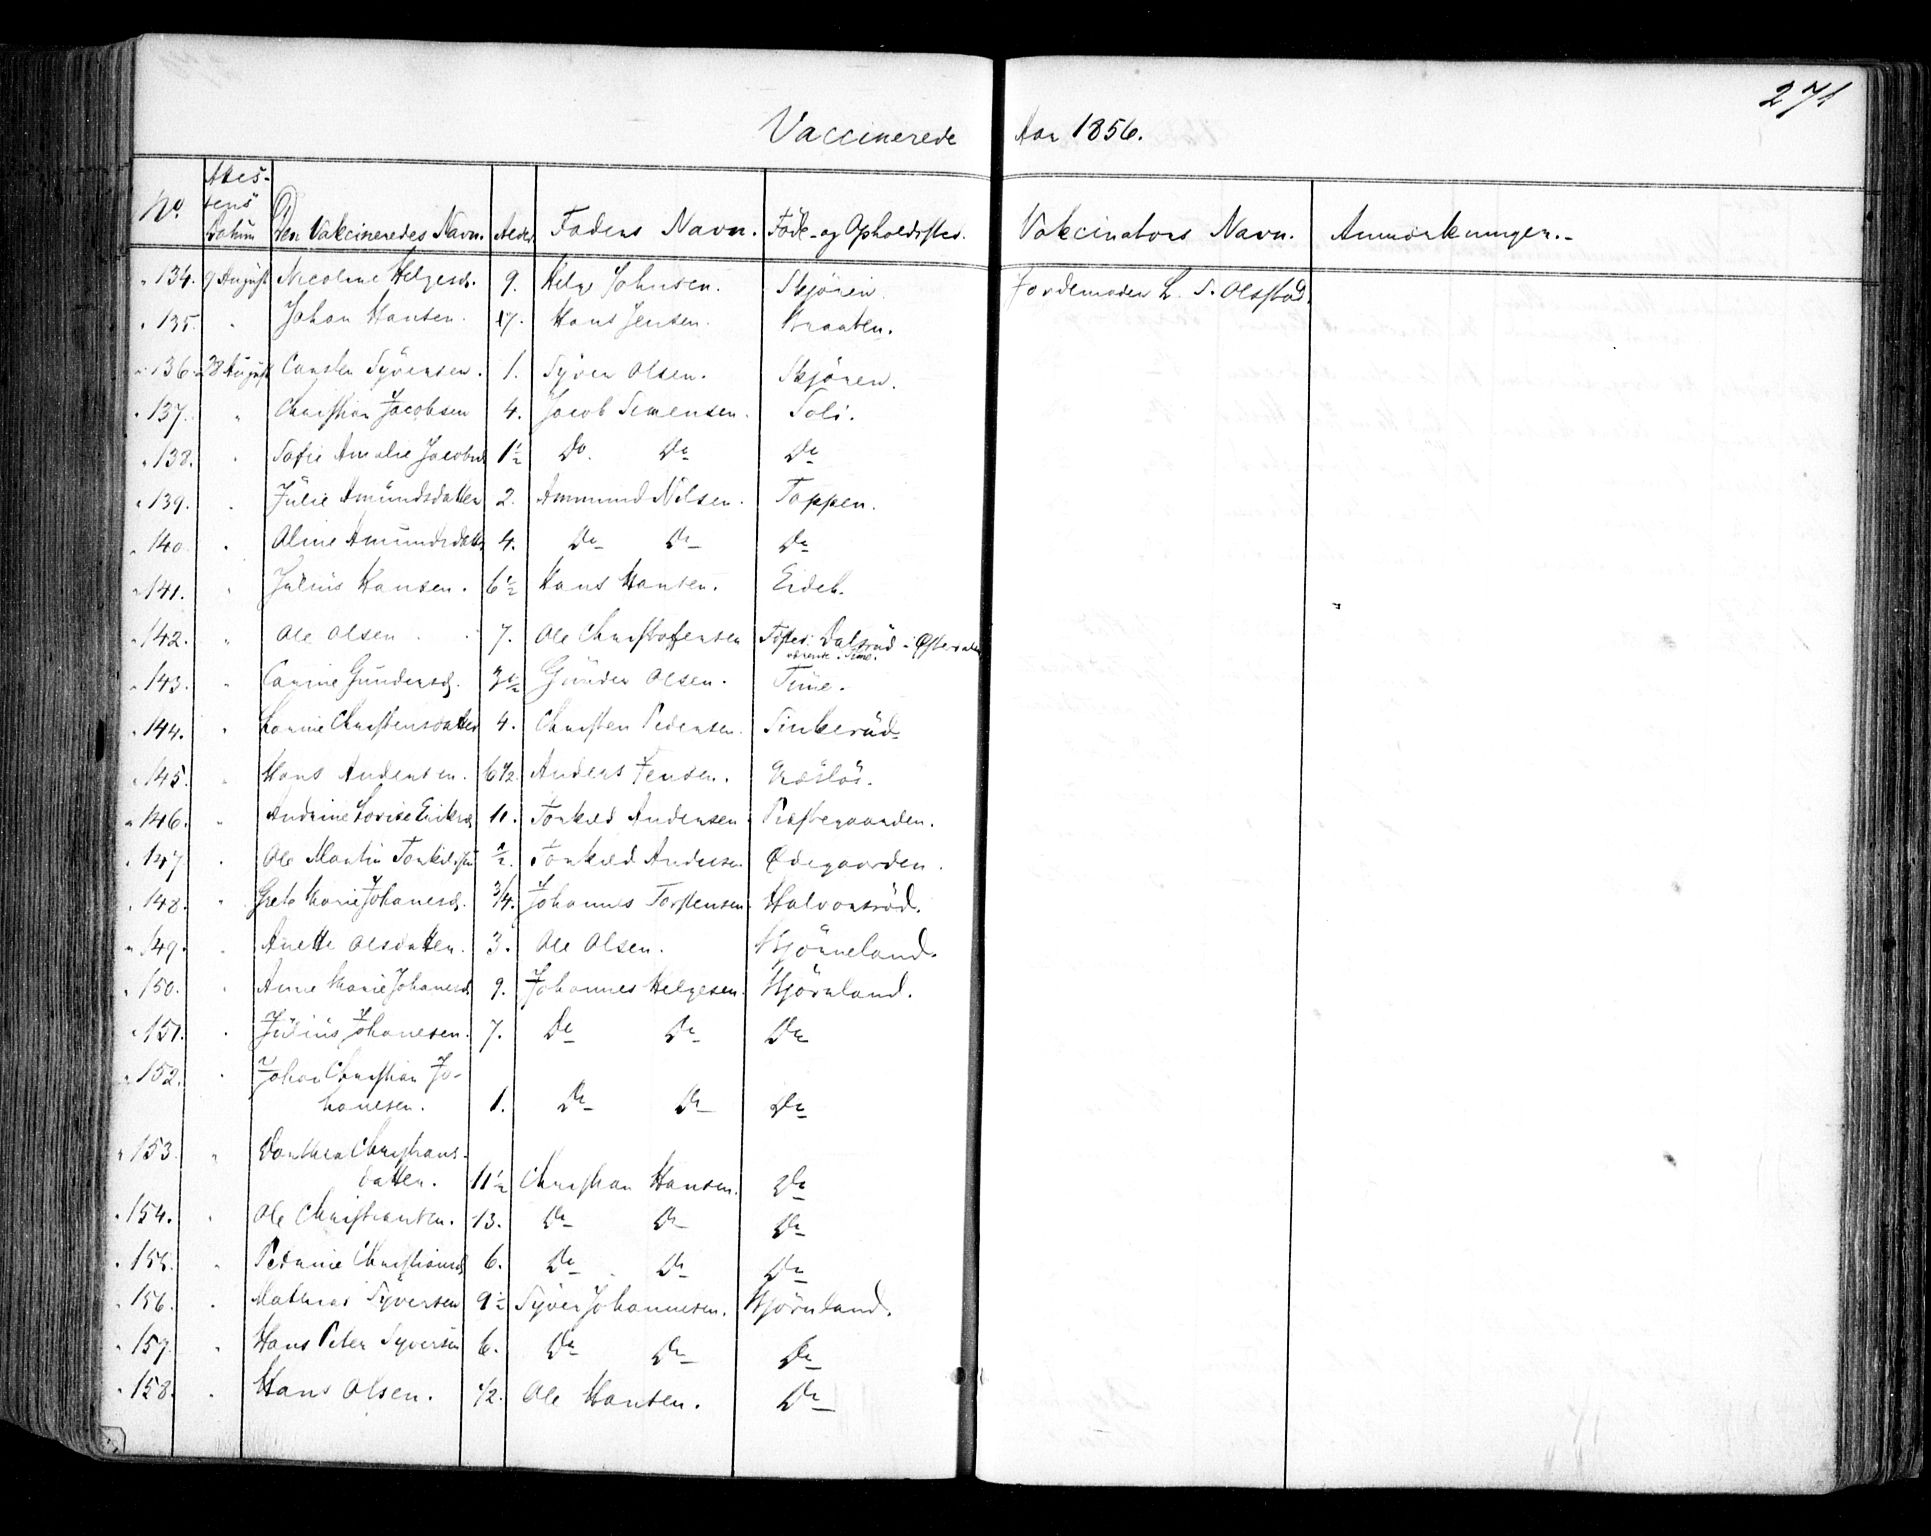 271
Vaccinerede Aar 1856.
No. Attes-tens Datum Den Vakcineredes Navn. Alder Faders Navn. Føde- og Opholdssted. Vakcinators Navn. Anmærkninger.
" 134. 9 August Nicoline Helgesd. 9. Helge Johnsen. Skjören. Jordemoder L. S. Olsstad.
" 135. " Johan Hansen. 17. Hans Jensen. Braaten.
" 136. 28 August Carsten Syversen. 1. Syver Olsen. Skjören.
" 137. " Christian Jacobsen 4. Jacob Simensen. Soli.
" 138. " Sofie Amalie Jacobsd. 1½ Do. Do Do
" 139. " Julie Amundsdatter 2. Ammund Nilsen. Toppen.
" 140 " Oline Amundsdatter 4. Do Do Do
" 141. " Julius Hansen. 6½ Hans Hansen. Eidet.
" 142. " Ole Olsen 7. Ole Christoffersen
" 143. " Carine Gundersd. 3½ Gunder Olsen. Time.
" 144. " Christensdatter 4. Christen Pedersen.
" 145. " Hans Andersen. 6½. Anders Jensen.
" 146. " Andrine Lovise 11. Torkild Andersen Prestegaarden.
" 147 " Ole Martin Torkildsen ½. Torkild Andersen Ødegaarden.
" 148. " Grete Marie Johanesd. 3/4. Johannes Torstensen Halvorsröd.
" 149. " Anette Olsdatter. 3. Ole Olsen. Hjörneland.
" 150. " Anne Marie Johanesd. 9. Johannes Helgesen. Hjörnland.
" 151. " Julius Johanesen. 7. Do Do Do
" 152. " Johan Christian Jo-
hanesen. 1. Do Do Do
" 153. " Dorthea Christians-
datter. 11½ Christian Hansen. Do
" 154. " Ole Christiansen. 13. Do Do Do
" 155. " Pedrine Christiansd. 6. Do Do Do
" 156. " Mathias Syversen 9½ Syver Johannesen. Hjörnland.
" 157. " Hans Peter Syversen 6. Do Do Do
" 158. " Hans Olsen. ½. Ole Hansen. Do